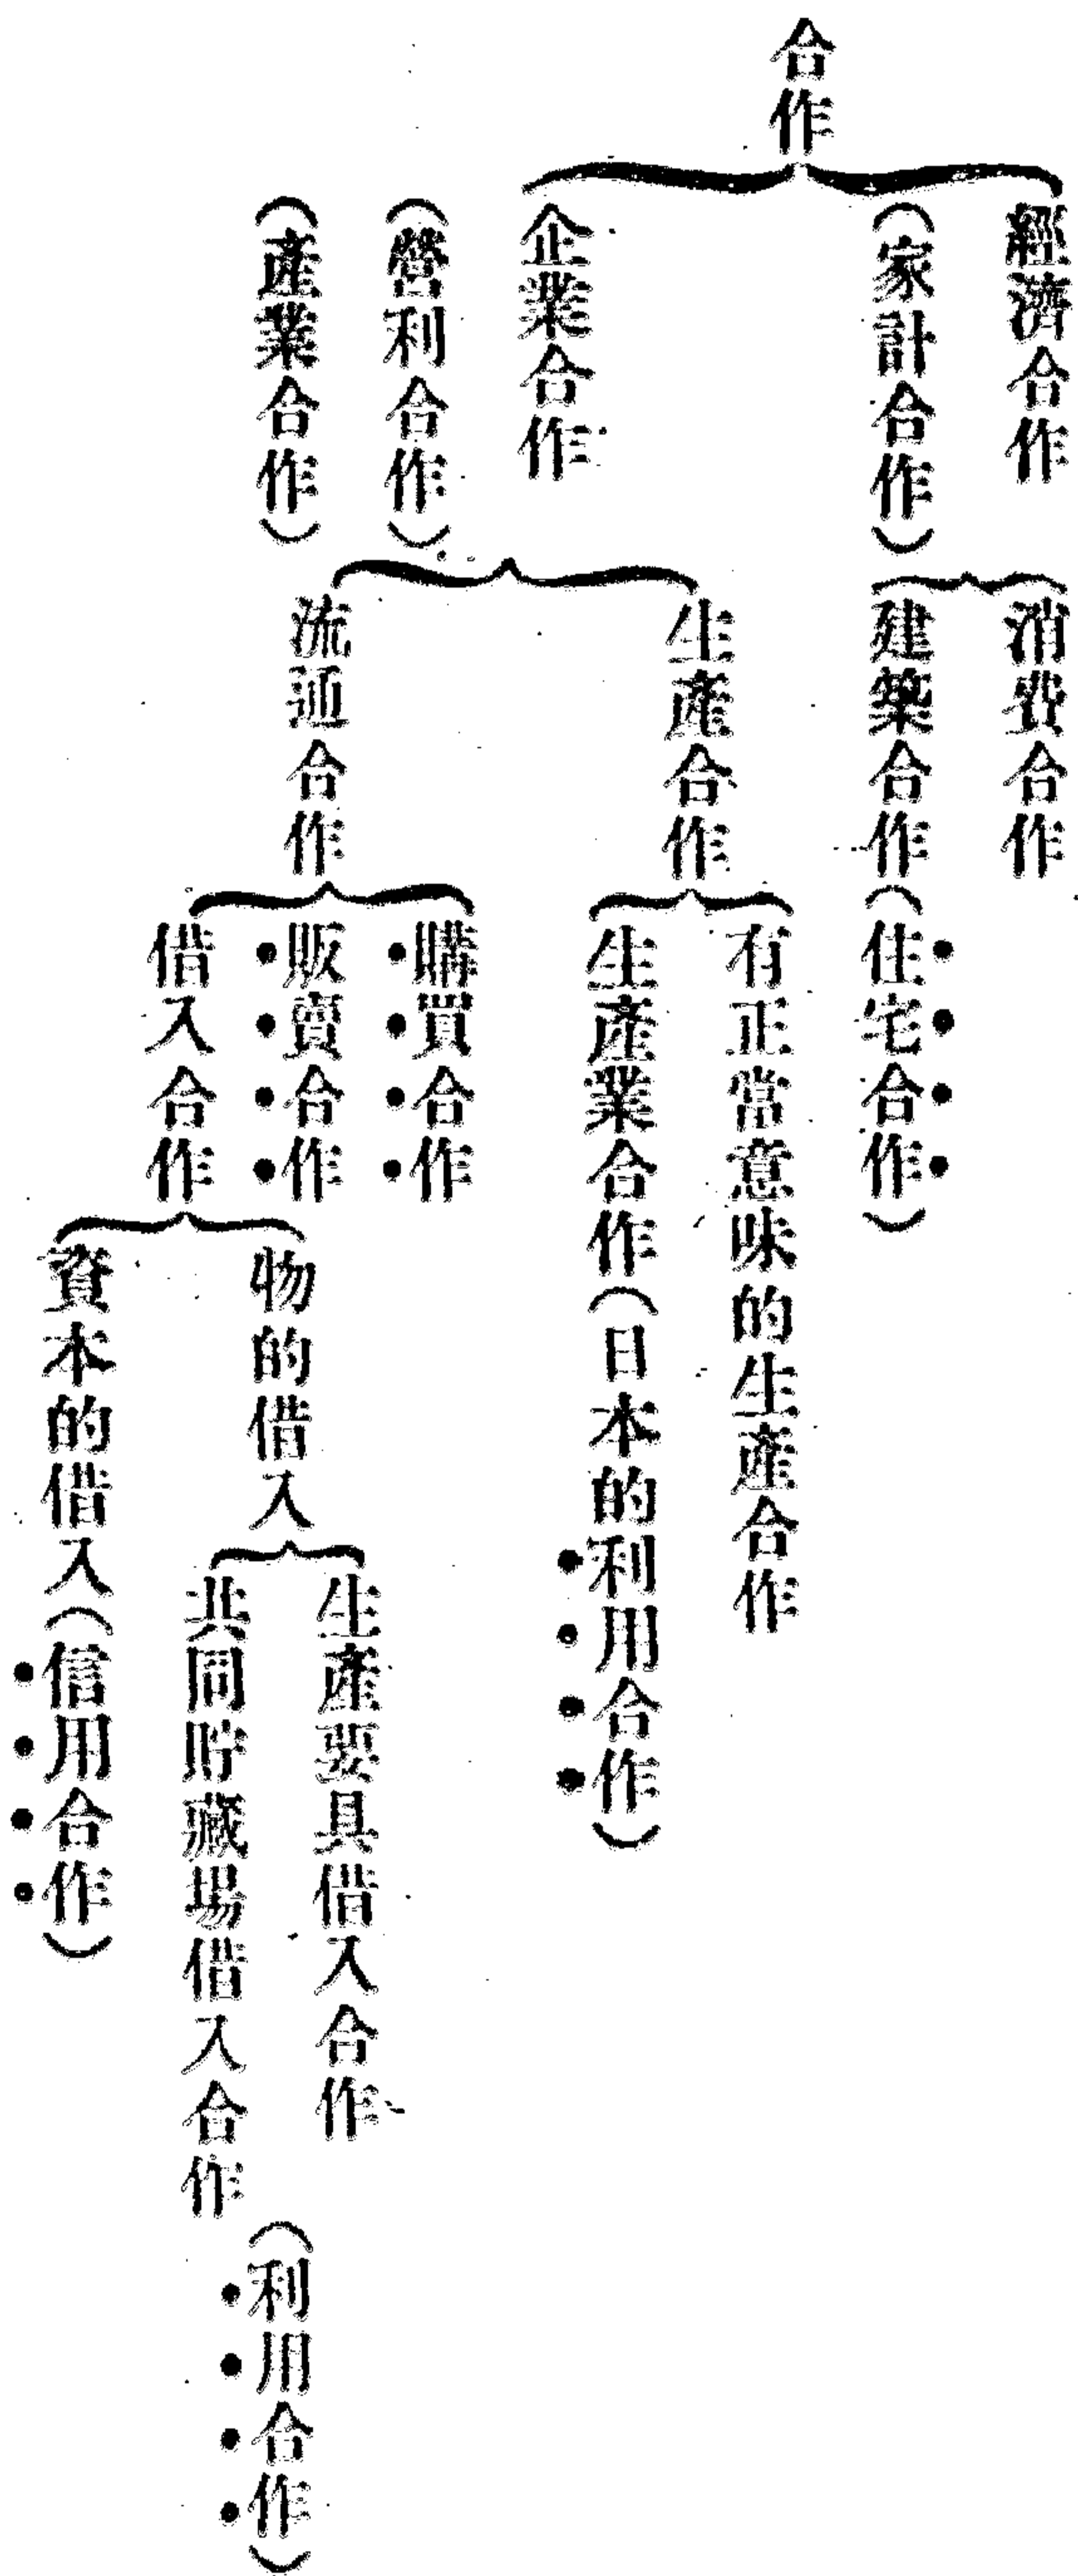 合作
經濟合作
（家計合作）
消費合作
建築合作（住宅合作）
企業合作
（營利合作）
（產業合作）
生產合作
有正常意味的生產合作
生產業合作（日本的利用合作）
流通合作
購買合作
販賣合作
借入合作
物的借入
生產要具借入合作
共同貯藏場借入合作
（利用合作）
資本的借入（信用合作）